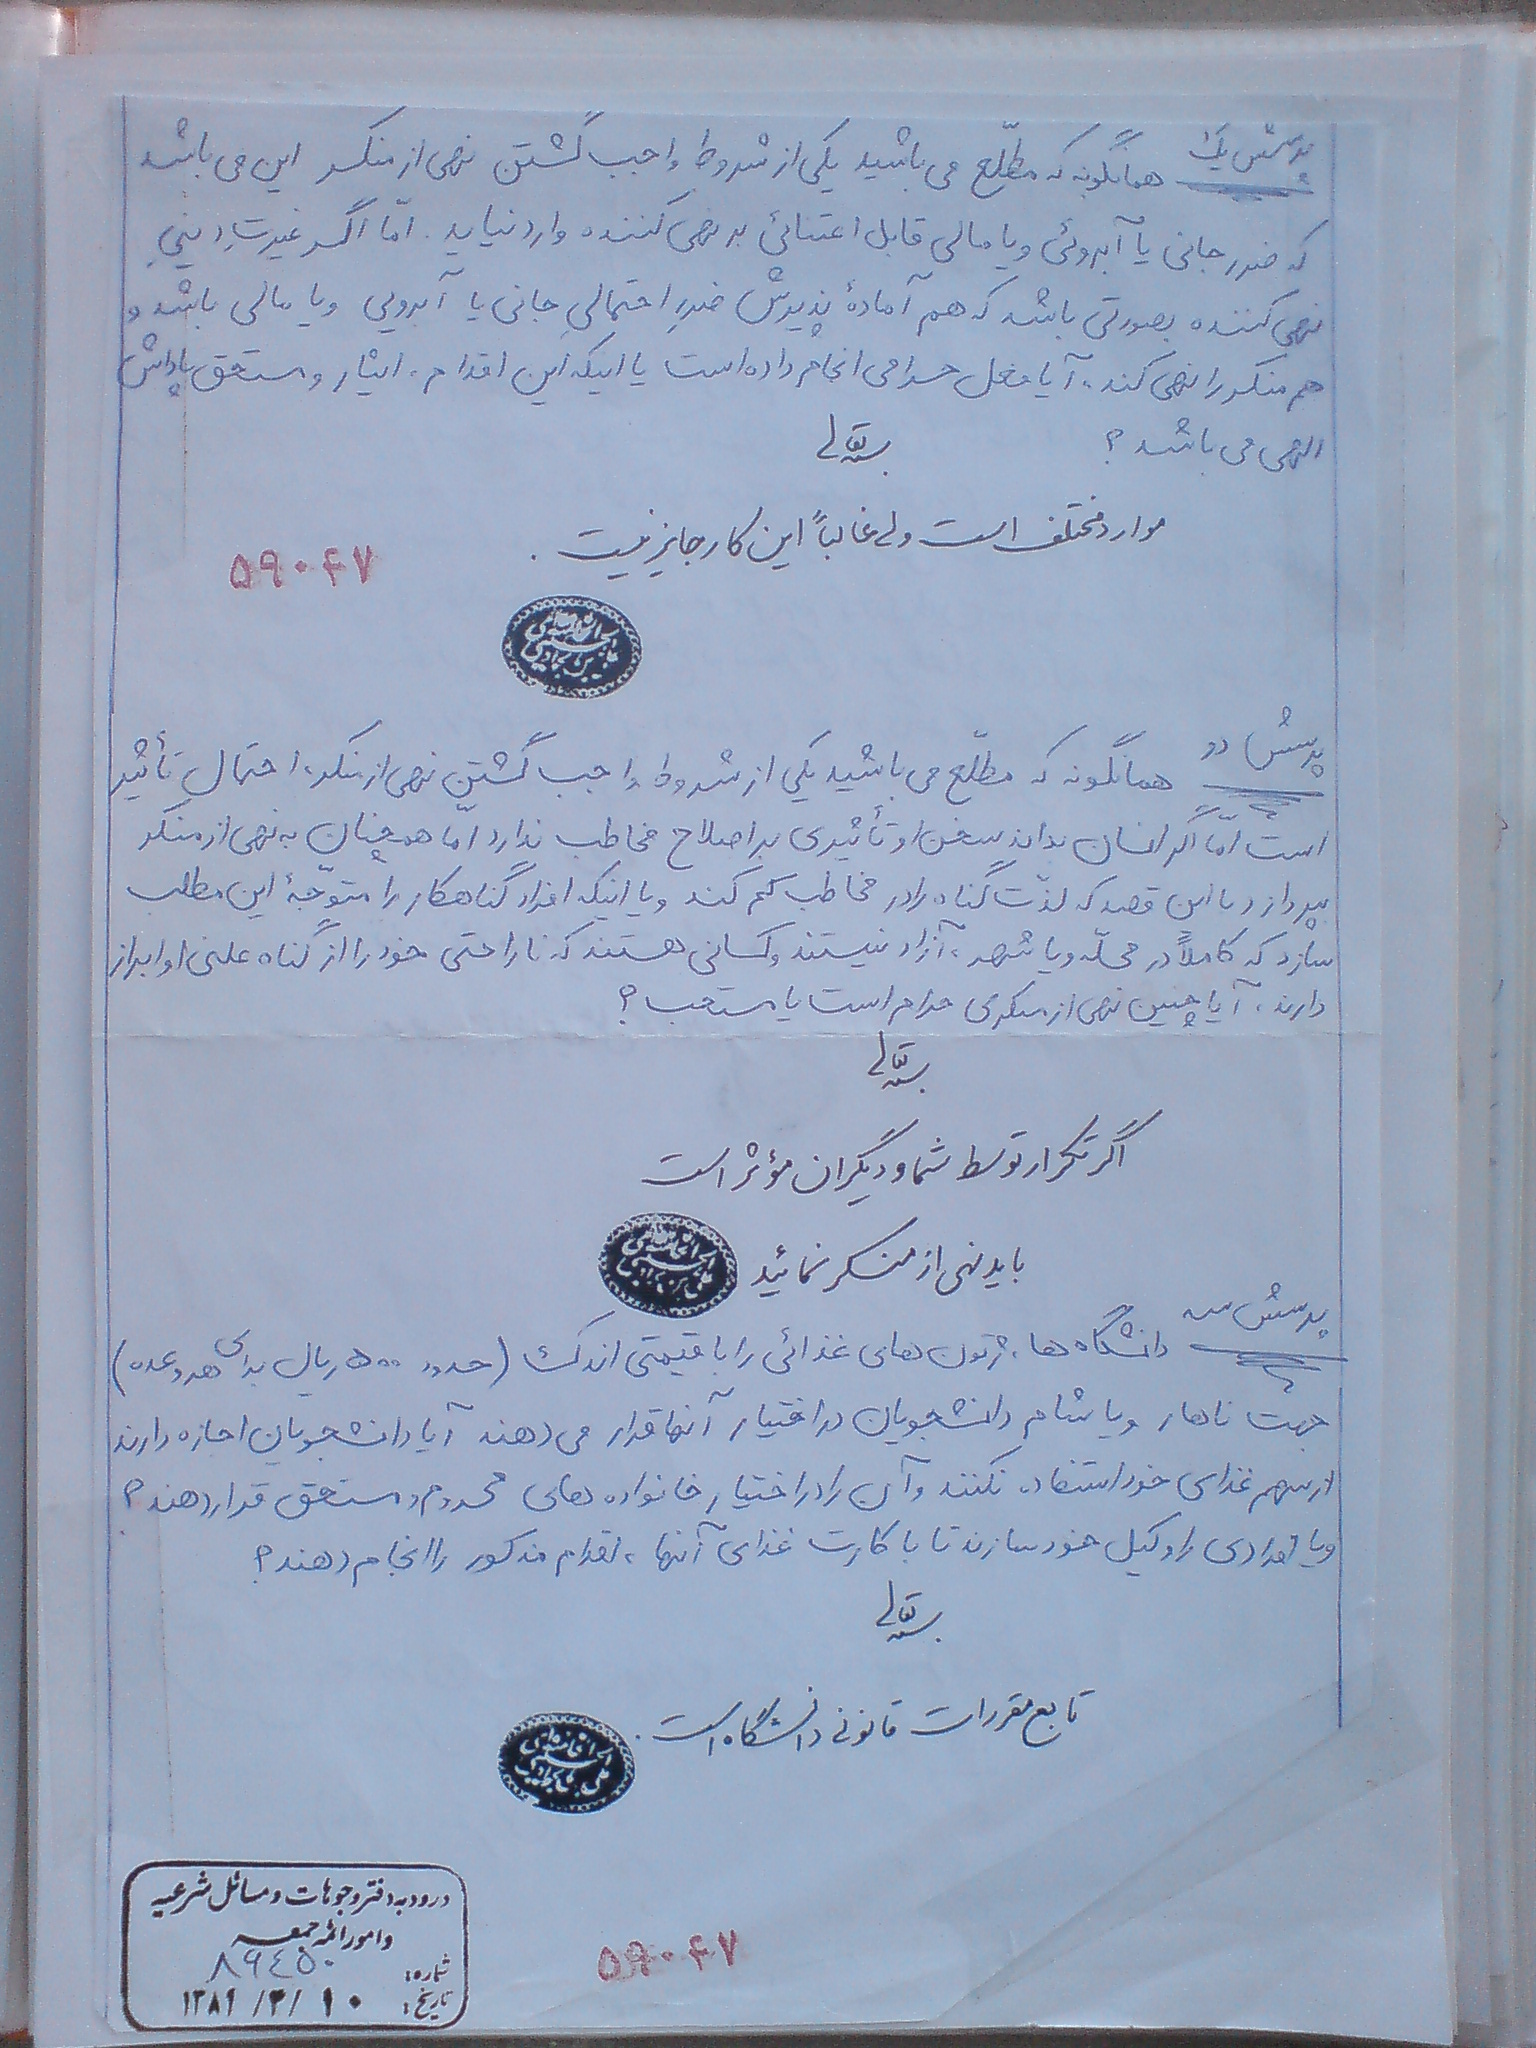 پرسش یک همانگونه که مطلّع می باشید یکی از شروط واجب گشتن نهی از منکر این می باشد
که ضرر جانی یا آبروئی و یا مالی قابل اعتنائی بر نهی کننده وارد نیاید. امّا اگر غیرتِ دینیِ
نهی کننده بصورتی باشد که هم آمادهٔ پذیرش ضررِ احتمالیِ جانی یا آبرویی و یا مالی باشد و
هم منکر را نهی کند، آیا فعل حرامی انجام داده است یا اینکه این اقدام، ایثار و مستحق پاداش
الهی می باشد؟
بسمه تعالی
موارد مختلف است ولی غالباً این کار جایز نیست.
۵۹۰۴۷
پرسش دو همانگونه که مطلّع می باشید یکی از شروط واجب گشتنِ نهی از منکر، احتمال تأثیر
است امّا اگر انسان بداند سخن او تأثیری بر اصلاح مخاطب ندارد امّا همچنان به نهی از منکر
بپردازد با این قصد که لذّت گناه را در مخاطب کم کند و یا اینکه افراد گناهکار را متوجّهٔ این مطلب
سازد که کاملاً در محلّه و یا شهر، آزاد نیستند و کسانی هستند که ناراحتی خود را از گناه علنی او ابراز
دارند، آیا چنین نهی از منکری حرام است یا مستحب؟
بسمه تعالی
اگر تکرار توسط شما و دیگران مؤثر است
باید نهی از منکر نمائید
پرسش سه دانشگاه ها، ژتون های غذائی را با قیمتی اندک (حدود ۵۰۰ ریال برای هر وعده)
جهت ناهار و یا شام دانشجویان در اختیار آنها قرار می دهند آیا دانشجویان اجازه دارند
از سهم غذای خود استفاده نکنند و آن را در اختیار خانواده های محروم و مستحق قرار دهند؟
و یا افرادی را وکیل خود سازند تا با کارت غذای آنها، اقدام مذکور را انجام دهند؟
بسمه تعالی
تابع مقررات قانونی دانشگاه است.
ورود به دفتر وجوهات و مسائل شرعیه
و امور ائمه جمعه
شماره: ۸۹۴۵۰
تاریخ: ۱۰ /۳/ ۱۳۸۹
۵۹۰۴۷